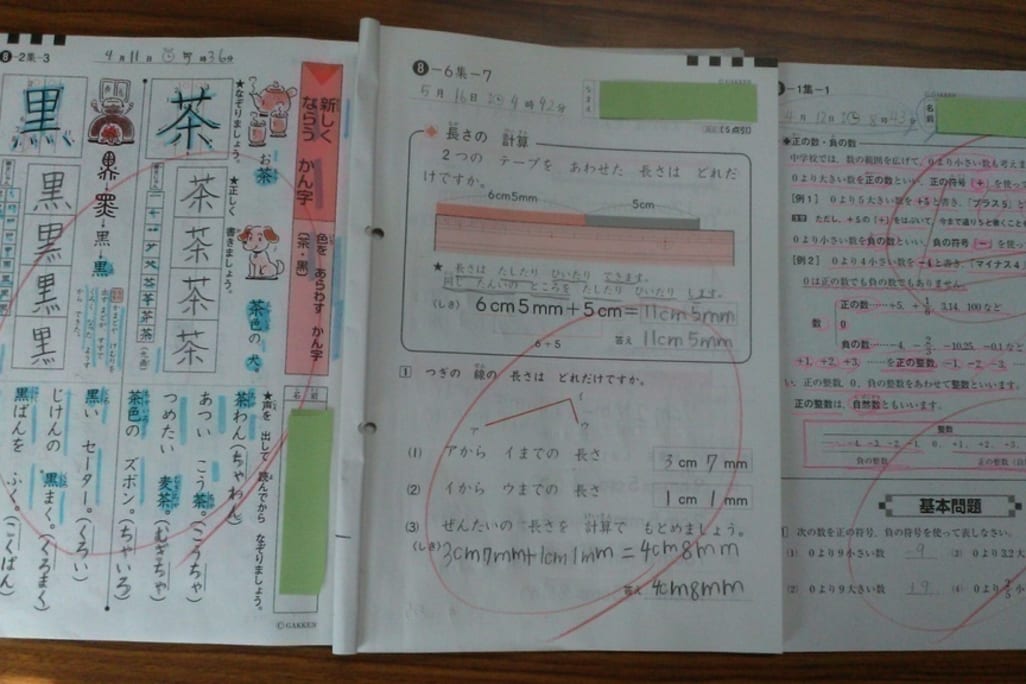 8-2集-3
4月11日
時36分
新しく
ならう かん字
色を あらわす かん字
〔茶・黒〕
★なぞりましょう。
★正しく
書きましょう。
お茶
茶色の 犬。
茶
茶
茶
茶
茶
黒
黒
黒
黒
黒
★声を 出して 読んでから なぞりましょう。
茶わん(ちゃわん)
あつい こう茶。(こうちゃ)
つめたい 麦茶。(むぎちゃ)
茶色の ズボン。(ちゃいろ)
黒い セーター。(くろい)
じけんの 黒まく。(くろまく)
黒ばんを ふく。(こくばん)
©GAKKEN
8-6集-7
©GAKKEN
5月16日 4時92分
なまえ
(5点引)
長さの 計算
2つの テープを あわせた 長さは どれだ
けですか。
6cm5mm 5cm
★ 長さは たしたり ひいたり できます。
同じ たんいの ところを たしたり ひいたり します。
(しき) 6cm5mm+5cm=11cm5mm
6+5 答え 11cm5mm
1 つぎの 線の 長さは どれだけですか。
ア イ ウ
(1) アから イまでの 長さ 3cm 7mm
(2) イから ウまでの 長さ 1cm 1mm
(3) ぜんたいの 長さを 計算で もとめましょう。
(しき) 3cm7mm+1cm1mm=4cm8mm
答え 4cm8mm
-1集-1
©GAKKEN
4月12日 8時43分
名前
◆正の数・負の数
中学校では、数の範囲を広げて、0より小さい数も考えま
0より大きい数を正の数といい、正の符号〔+〕を使っ
[例1] 0より5大きい数を+5と書き、「プラス5」と
ただし、+5の〔+〕をはぶいて、今まで通り5と書くこと
0より小さい数を負の数といい、負の符号〔-〕を使っ
[例2] 0より4小さい数を-4と書き、「マイナス4」
0は正の数でも負の数でもありません。
正の数……+5, 3.14, 100など
数 0
負の数……-4, -2/3, -10.25, -0.1など
+1, +2, +3, ……を正の整数, -1, -2, -3,
い、正の整数, 0, 負の整数をあわせて整数といいます。
正の整数は、自然数ともいいます。
整数
-4, -3, -2, -1, 0, +1, +2, +3,
負の整数 正の整数
基本問題
次の数を正の符号、負の符号を使って表しなさい。
(1) 0より9小さい数 -9 0より3.2大
(2) 0より9大きい数 +9 (4) 0より